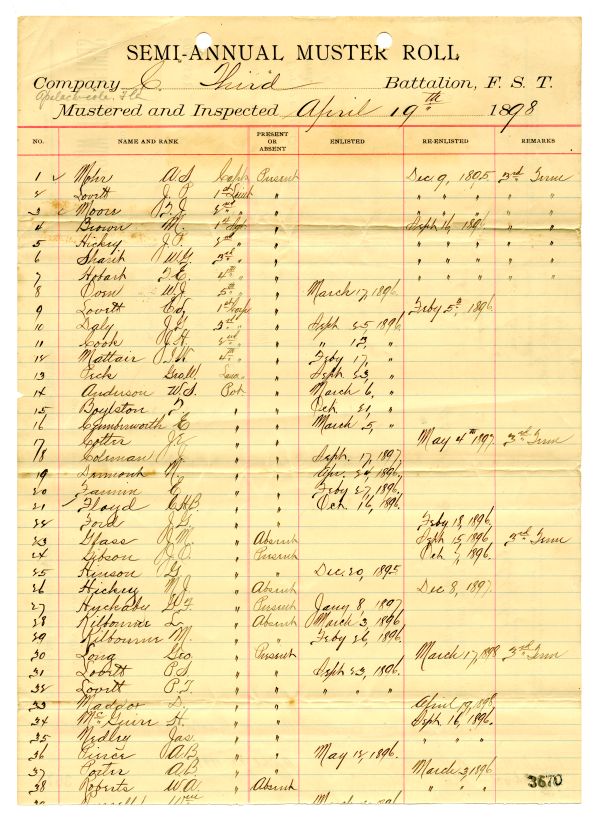 SEMI-ANNUAL MUSTER ROLL
Company C. Third Battalion, F. S. T.
Apalachicola, Fla
Mustered and Inspected April 19th 1898
NO. NAME AND RANK PRESENT OR ABSENT ENLISTED RE-ENLISTED REMARKS
1 ✓ Mohr A. S. Capt Present Dec 9, 1895 3rd Term
2 Lovett J. P. 1st Lieut " " " " " "
3 Moore F. J. 2nd " " " " " " "
4 Brown M. 1st Sgt " Sept 16, 1896
5 Hickey J. F. 2nd " " " " " "
6 Sharit W. G. 3rd " " " " "
7 Hobart T. E. 4th " " " " " "
8 Oven W. J. 5th " " March 17, 1896
9 Lovett Ed. 1st Corp " Feby 5th, 1896
10 Daly J. L. 3rd " " Sept 25, 1896
11 Cook J. H. 2nd " " " 12, "
12 Mattair J. W. 4th " " Feby 17, "
13 Pick Geo W. " Sept 23, "
14 Anderson W. S. Pvt " March 6, "
15 Boylston F " Oct 21, "
16 Cumbsworth E " March 5, "
17 Cotter J. " May 4th 1897. 3rd Term
18 Coleman J. " Sept. 17, 1897
19 Dermont M. " " Apr. 24, 1896
20 Fannin C. " " Feby 27, 1896
21 Floyd C. H. B. " " Oct. 16, 1896
22 Ford J. G. " " Feby 18, 1896
23 Glass J. M. " Absent Sept 15, 1896 3rd Term
24 Gibson J. E. " Present Oct 1, 1896.
25 Hinson G. " " Dec. 20, 1895
26 Hickey M. J. " Absent Dec 8, 1897.
27 Huckaby G. F. " Present Jany 8, 1897
28 Kilbourne L. " Absent March 3, 1896
29 Kilbourne M. " " Feby 26, 1896.
30 Long Geo. " Present March 17, 1898 3rd Term
31 Lovett P. S. " " Sept 23, 1896.
32 Lovett P. T. " " " " "
33 Maddox D. " " April 19, 1898
34 McGuire H. " " Sept 16, 1896.
35 Medley Jas. " " " " "
36 Pierce A. B. " " May 15, 1896.
37 Porter A. B. " " March 3, 1896
38 Roberts W. A. " Absent " " "
39
3670